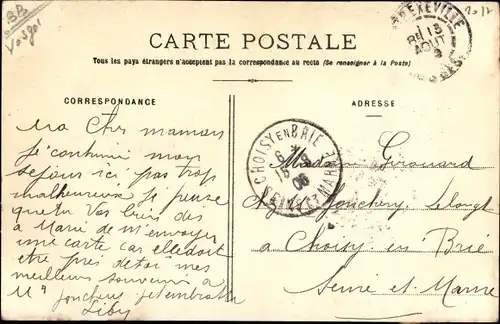 BB
Vosges
2017
CARTE POSTALE
Tous les pays étrangers n'acceptent pas la correspondance au recto (Se renseigner à la Poste)
CORRESPONDANCE
ma cher maman
je continue mon
sejour ici pas trop
malheureuse je pense
que tu vas bien dis
a Marie de m'envoyer
une carte car elle doit
etre près de toi mes
meilleurs souvenir a
Mr Jonchery je t'embrasse
ADRESSE
CONTREXEVILLE
8H 15
AOUT
VOSGES
CHOISY EN BRIE
6 *
15 8
06
SEINE ET MARNE
Madame Girouard
Jonchery
a Choisy en Brie
Seine et Marne